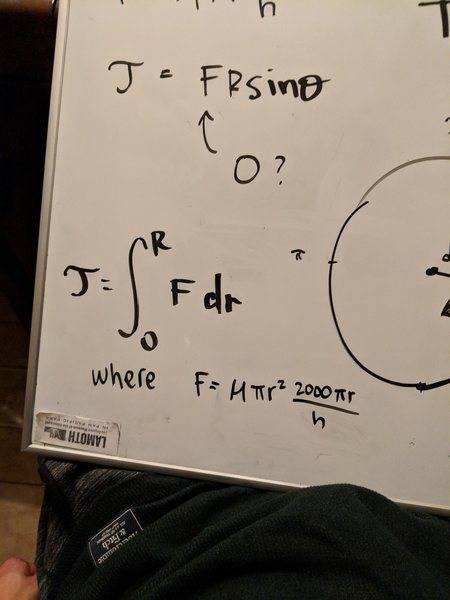 h
T
τ = FRsinθ
0?
τ = ∫₀ᴿ F dr
π
d
where F = μπr² 2000πr / h
LAMOTH
& Fitch